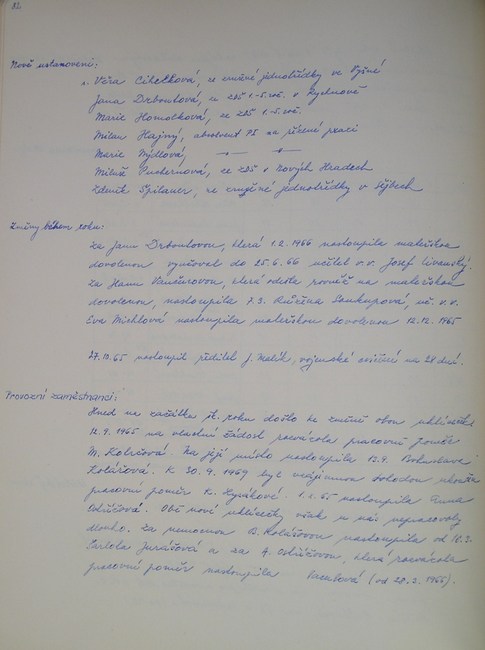 82
Nově ustanoveni:
s. Věra Cihelková, ze zrušené jednotřídky ve Vyšné
Jana Drboutová, ze ZDŠ 1.-5. roč. v Rychnově
Marie Homolková, ze ZDŠ 1.-5. roč.
Milan Hajný, absolvent PI na řízené praxi
Marie Mýdlová, —"— —"—
Miluše Puchernová, ze ZDŠ v Nových Hradech
Zdeněk Spilauer, ze zrušené jednotřídky v Sejbech
Změny během roku:
Za Janu Drboutovou, která 1.2.1966 nastoupila mateřskou
dovolenou vyučoval do 25.6.66 učitel v.v. Josef
Za Hanu Vančurovou, která odešla rovněž na mateřskou
dovolenou, nastoupila 7.3. Růžena Soukupová, uč. v.v.
Eva Michlová nastoupila mateřskou dovolenou 12.12.1965
27.10.65 nastoupil ředitel J. Malík, vojenské cvičení na 28 dní.
Provozní zaměstnanci:
Hned na začátku šk. roku došlo ke změně obou uklízeček
12.9.1965 na vlastní žádost rozvázala pracovní poměr
M. Na její místo nastoupila 13.9. Bohuslava
Kolářová. K 30.9. byl vzájemnou dohodou
pracovní poměr K. nastoupila Anna
Obě nové uklízečky však u nás nepracovaly
dlouho. Za nemocnou B. Kolářovou nastoupila od
Jurášová a za A. která rozvázala
pracovní poměr nastoupila (od 28.2.1966).